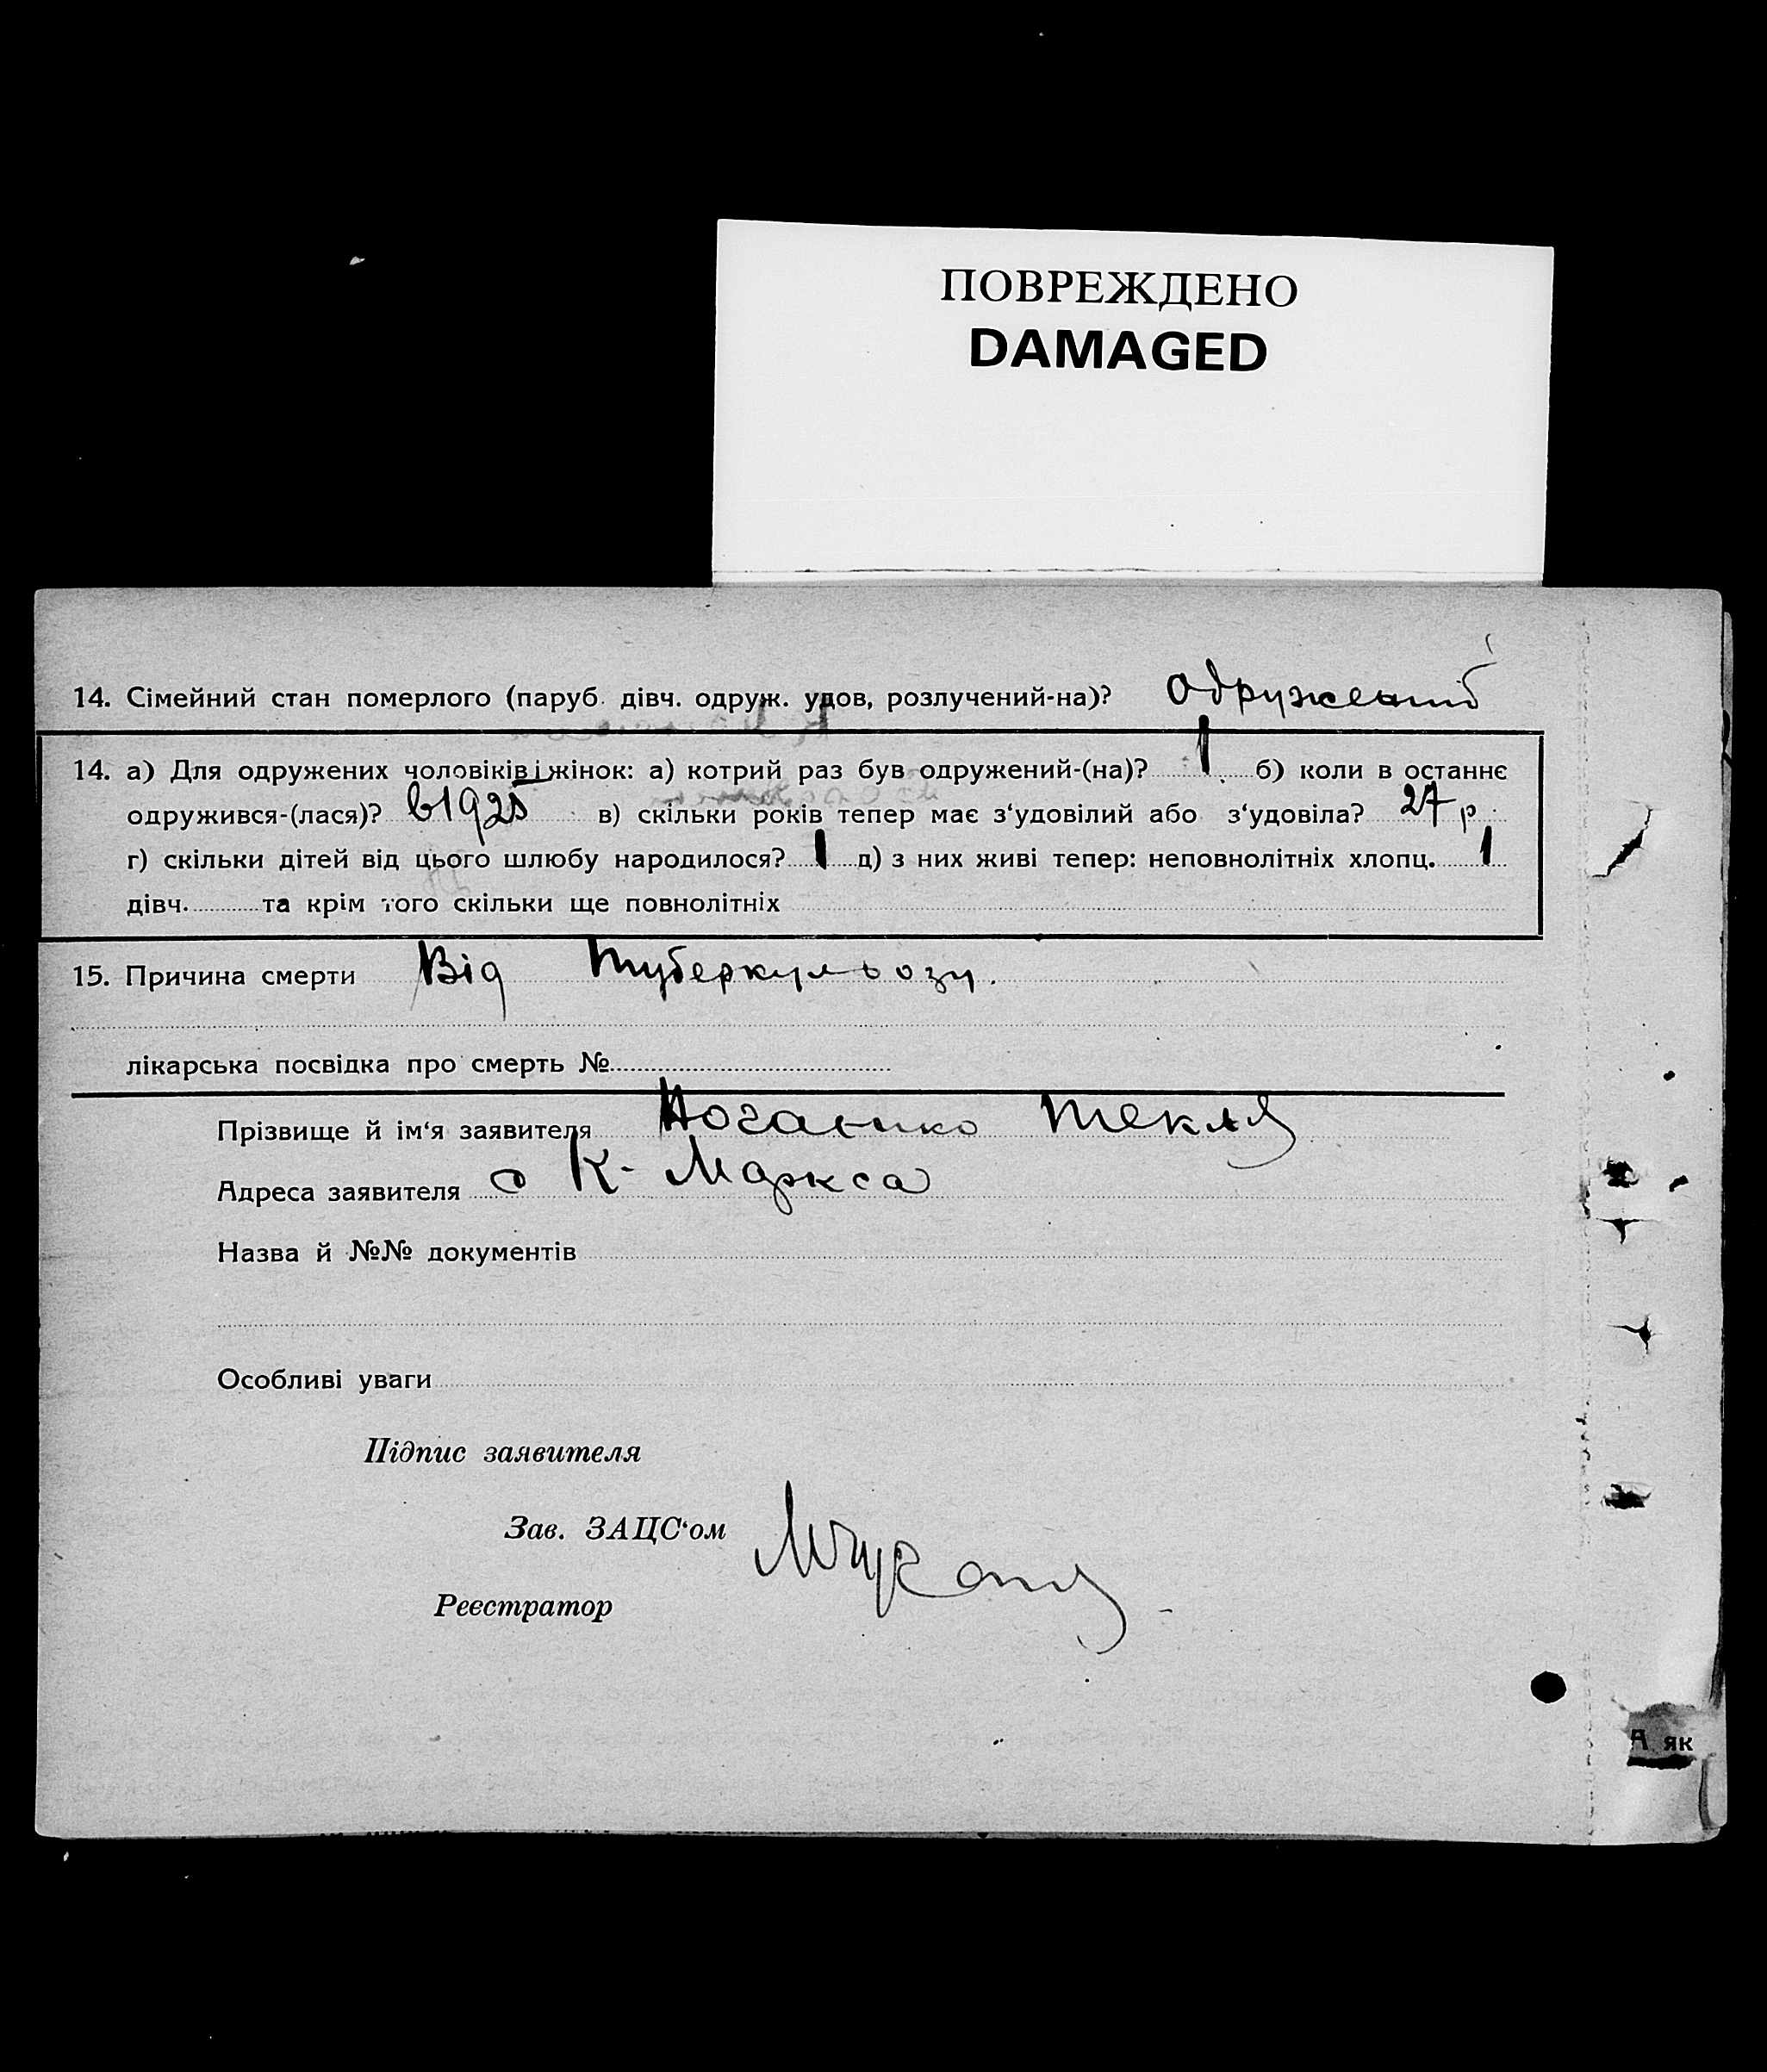 ПОВРЕЖДЕНО
DAMAGED
14. Сімейний стан померлого (паруб. дівч. одруж. удов, розлучений-на)? одружений
14. а) Для одружених чоловіків і жінок: а) котрий раз був одружений-(на)? 1 б) коли в останнє
одружився-(лася)? в 1925 в) скільки років тепер має з‘удовілий або з‘удовіла? 27 р
г) скільки дітей від цього шлюбу народилося? 1 д) з них живі тепер: неповнолітніх хлопц. 1
дівч. та крім того скільки ще повнолітніх
15. Причина смерти Від туберкульозу.
лікарська посвідка про смерть №
Прізвище й ім‘я заявителя Текля
Адреса заявителя с К-Маркса
Назва й №№ документів
Особливі уваги
Підпис заявителя
Зав. ЗАЦС‘ом
Реєстратор
А як